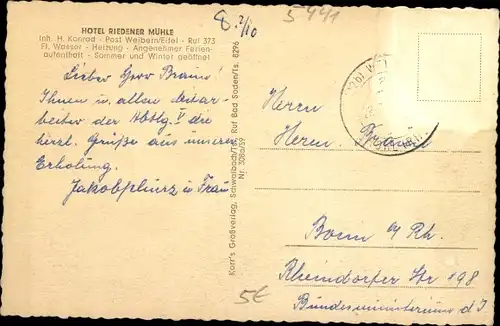 HOTEL RIEDENER MÜHLE
Inh. H. Konrad · Post Weibern/Eifel · Ruf 373
Fl. Wasser · Heizung · Angenehmer Ferien-
aufenthalt · Sommer und Winter geöffnet
8. 2/10
5441
Lieber Herr Braun!
Ihnen u. allen Mitar-
beiter der Abtlg. V die
herzl. Grüße aus unserer
Erholung.
u. Frau
Korr's Großverlag, Schwalbach/Ts., Ruf Bad Soden/Ts. 8296
Nr. 308a/59
Herrn
Herm. Braun
Bonn a/Rh.
Rheindorfer Str 198
Bundesministerium d. I
5€